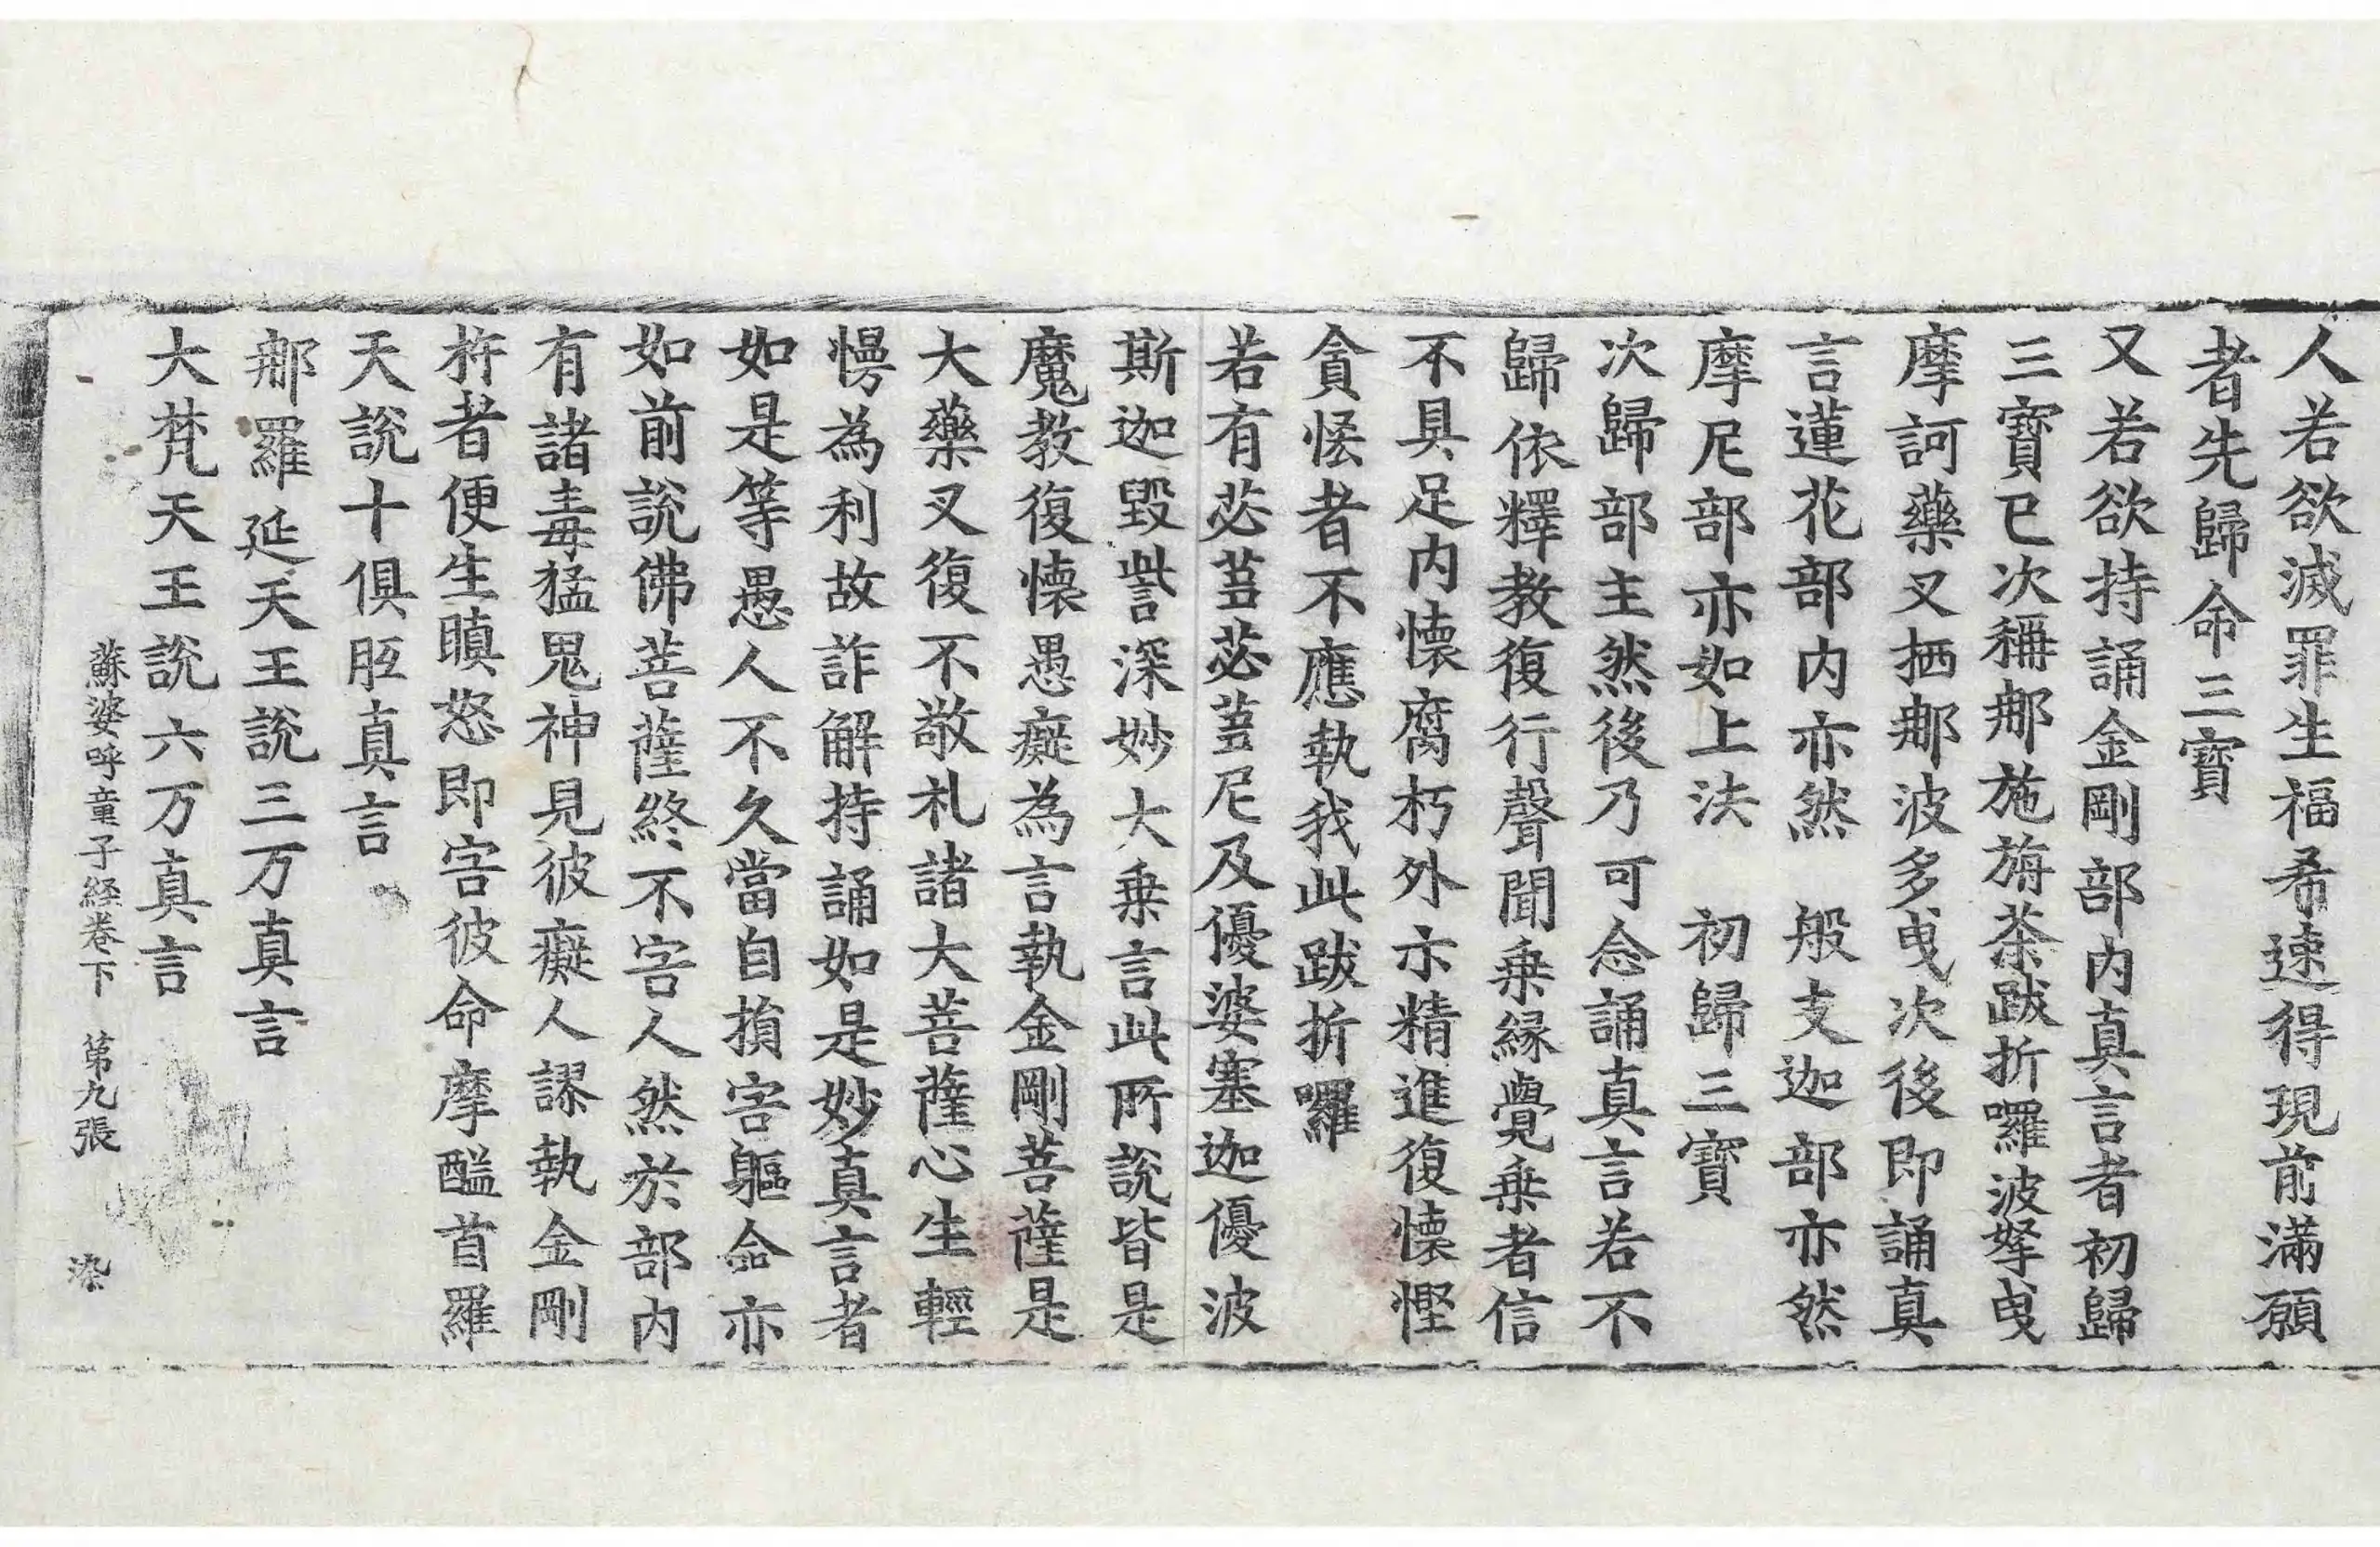 人若欲滅罪生福希速得現前滿願
者先歸命三寶
又若欲持誦金剛部内真言者初歸
三寶已次稱那施旃茶跋折囉波拏曳
摩訶藥叉栖那波多曳次後即誦真
言蓮花部内亦然　般支迦部亦然
摩尼部亦如上法　初歸三寶
次歸部主然後乃可念誦真言若不
歸依釋教復行聲聞乗縁覺乗者信
不具足内懐腐朽外示精進復懐慳
貪恡者不應執我此跋折囉
若有苾蒭苾蒭尼及優婆塞迦優波
斯迦毀訾深妙大乗言此所說皆是
魔教復懐愚癡為言執金剛菩薩是
大藥叉復不敬礼諸大菩薩心生輕
慢為利故詐解持誦如是妙真言者
如是等愚人不久當自損害軀命亦
如前說佛菩薩終不害人然於部内
有諸毒猛鬼神見彼癡人謬執金剛
杵者便生瞋怒即害彼命摩醯首羅
天說十俱胝真言
那羅延天王說三万真言
大梵天王說六万真言
蘇婆呼童子経卷下　第九張　染